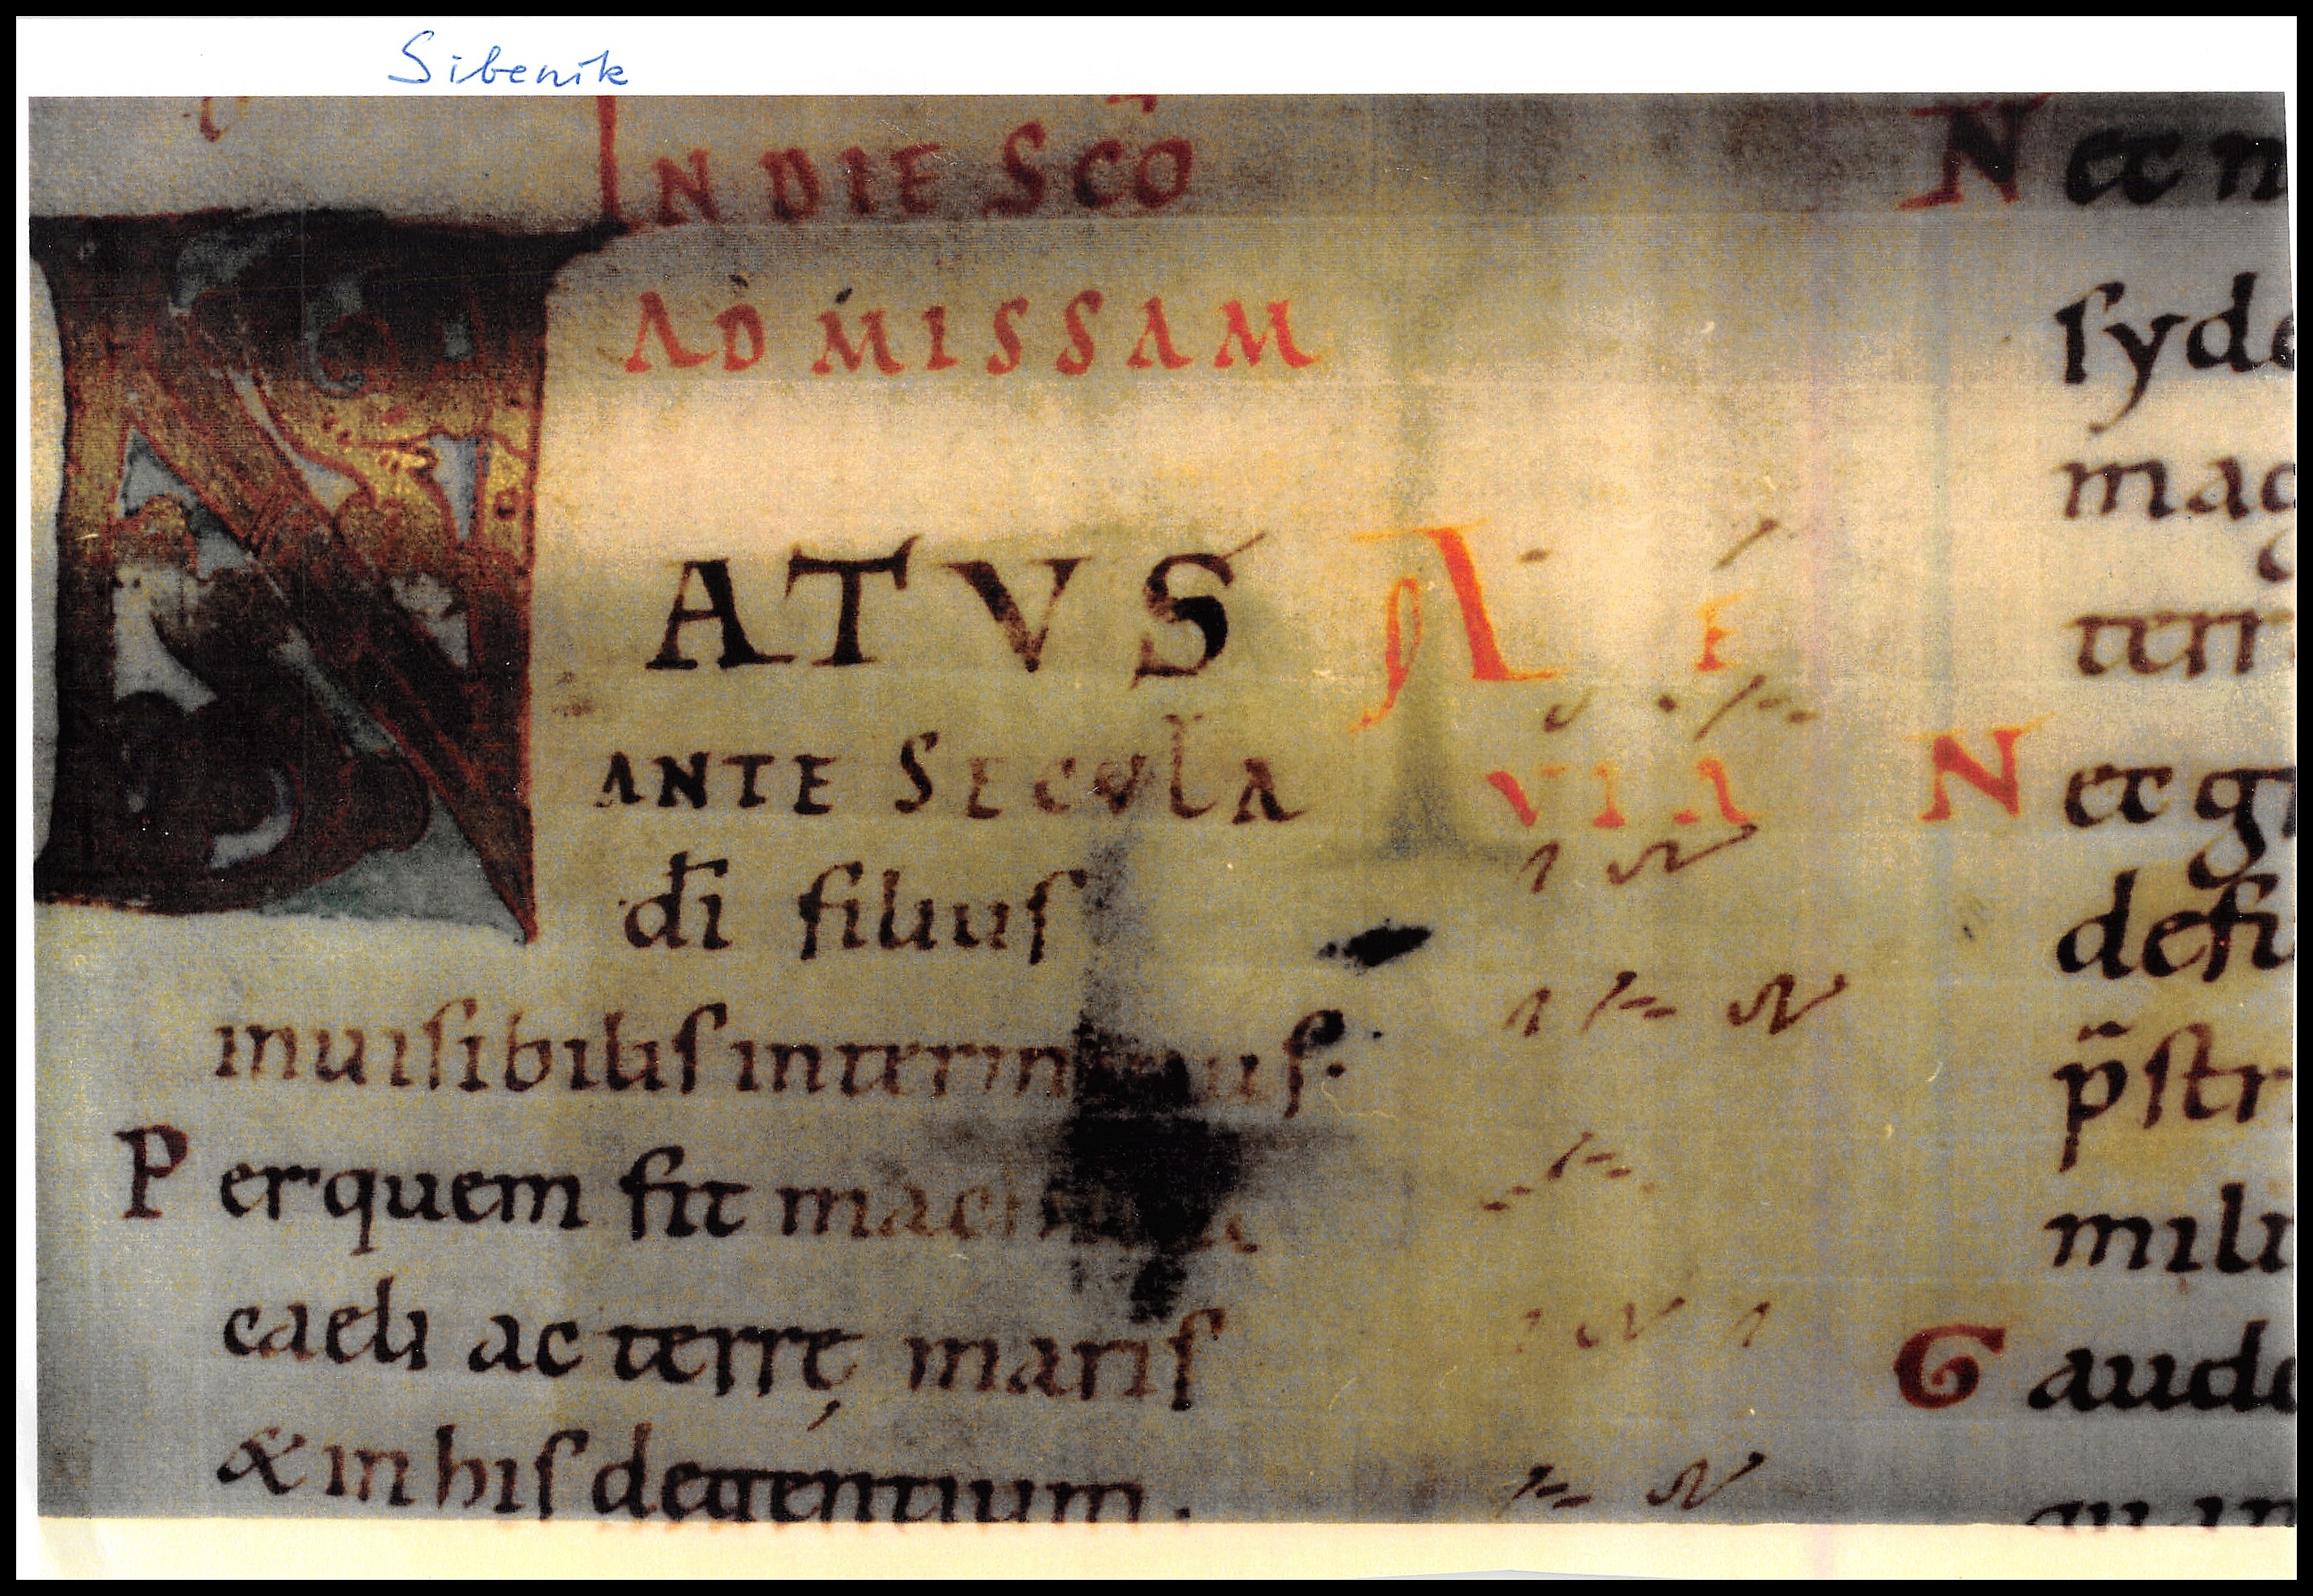 Sibenik
IN DIE SCO
AD MISSAM
NATVS
ANTE SECVLA
A E
VIA
di filius
inuisibilis
Per quem fit
caeli ac terrę maris
& in his degentium.
N ec n
syde
mag
terr
N ec g
defi
p̄str
mili
G aude